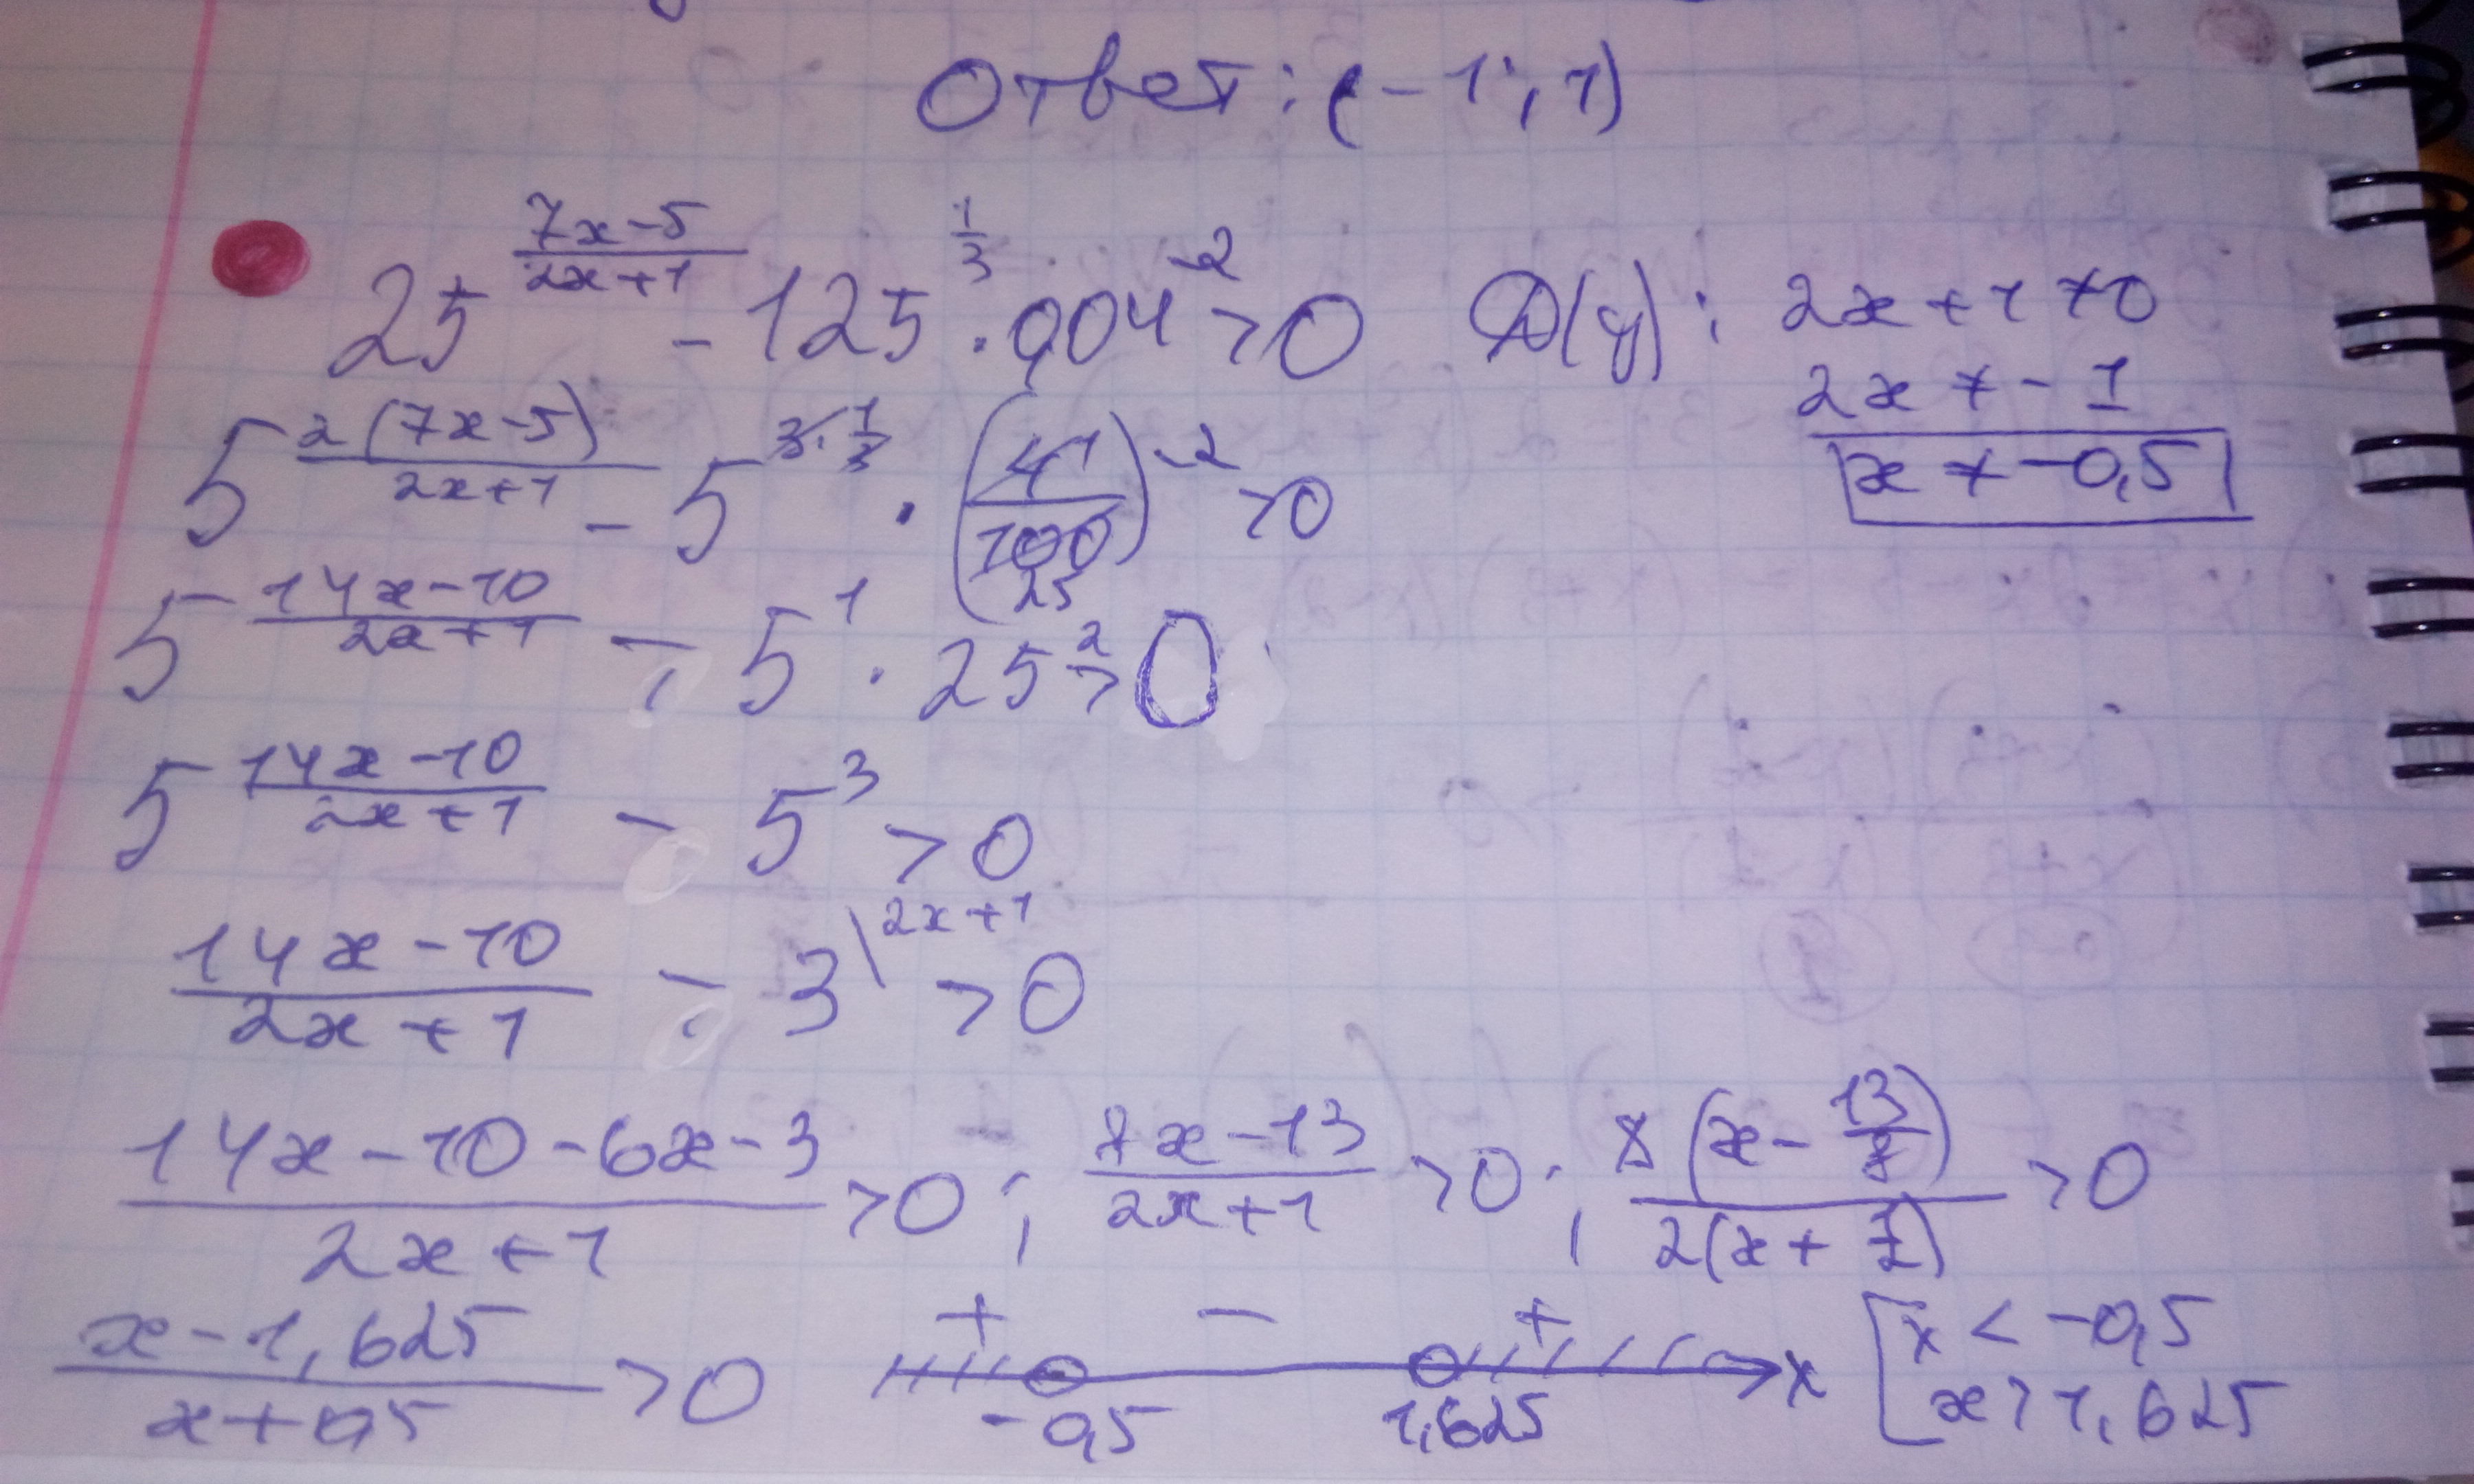 Ответ: (-1; 1)
25^((7x-5)/(2x+1)) - 125^(1/3) · 0,04^(-2) > 0 D(y): 2x+1≠0
2x ≠ -1
5^(2(7x-5)/(2x+1)) - 5^(3·1/3) · (4/100)^(-2) > 0 x ≠ -0,5
1
25
5^((14x-10)/(2x+1)) - 5^1 · 25^2 > 0
5^((14x-10)/(2x+1)) - 5^3 > 0
(14x-10)/(2x+1) - 3\^(2x+1) > 0
(14x-10-6x-3)/(2x+1) > 0; (8x-13)/(2x+1) > 0; 8(x-13/8)/(2(x+1/2)) > 0
(x-1,625)/(x+0,5) > 0 + - + x [ x < -0,5
-0,5 1,625 x > 1,625